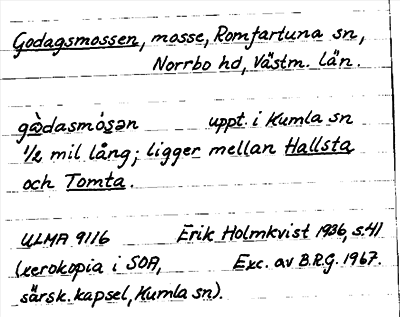 Godagsmossen, mosse, Romfartuna sn,
Norrbo hd, Västm. län.
gòdasmósən uppt. i Kumla sn
1/2 mil lång; ligger mellan Hallsta
och Tomta.
ULMA 9116 Erik Holmkvist 1936, s.41
(xerokopia i SOA, Exc. av B.R.G. 1967.
särsk. kapsel, Kumla sn).